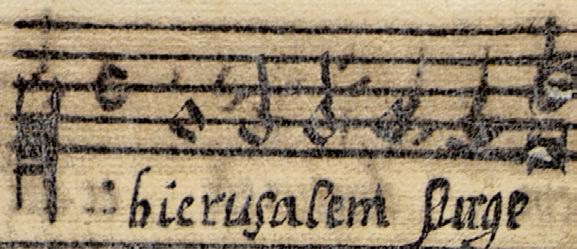 hierusalem surge